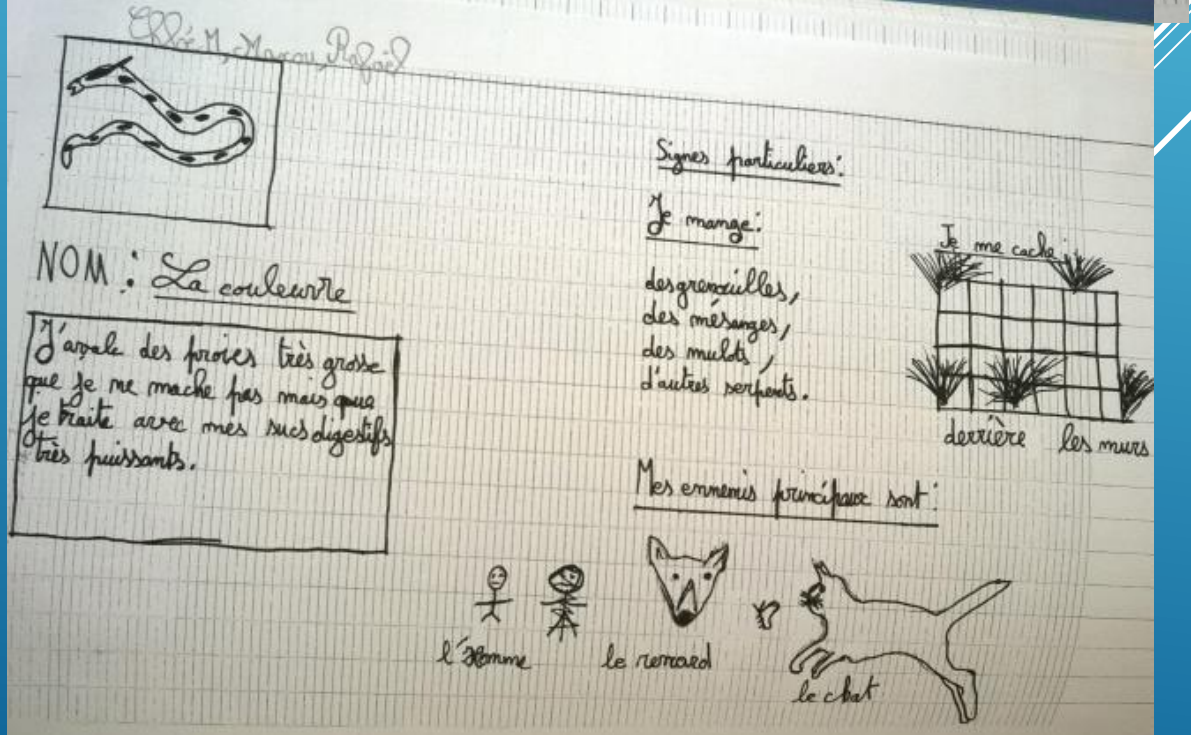 Chloé M, Manou, Rafaël
NOM : La couleuvre
J'avale des proies très grosse
que je ne mache pas mais que
je traite avec mes sucs digestifs
très puissants.
Signes particuliers :
Je mange :
des grenouilles,
des mésanges,
des mulots,
d'autres serpents.
Je me cache :
derrière les murs
Mes ennemis principaux sont :
l'Homme
le renard
le chat